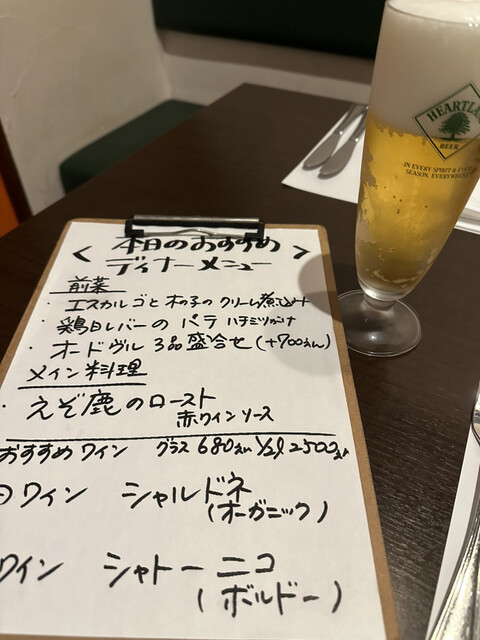 < 本日のおすすめ >
ディナーメニュー
前菜
・エスカルゴと木の子のクリーム煮込み
・鶏白レバーのパテ ハチミツがけ
・オードヴル 3品盛合せ(+700えん)
メイン料理
・えぞ鹿のロースト
赤ワインソース
おすすめワイン グラス680えん 1/2ℓ 2500えん
ワイン シャルドネ
(オーガニック)
ワイン シャトーニコ
(ボルドー)
HEARTLA
BEER
IN EVERY SPIRIT & EV
SEASON, EVERYWHERE